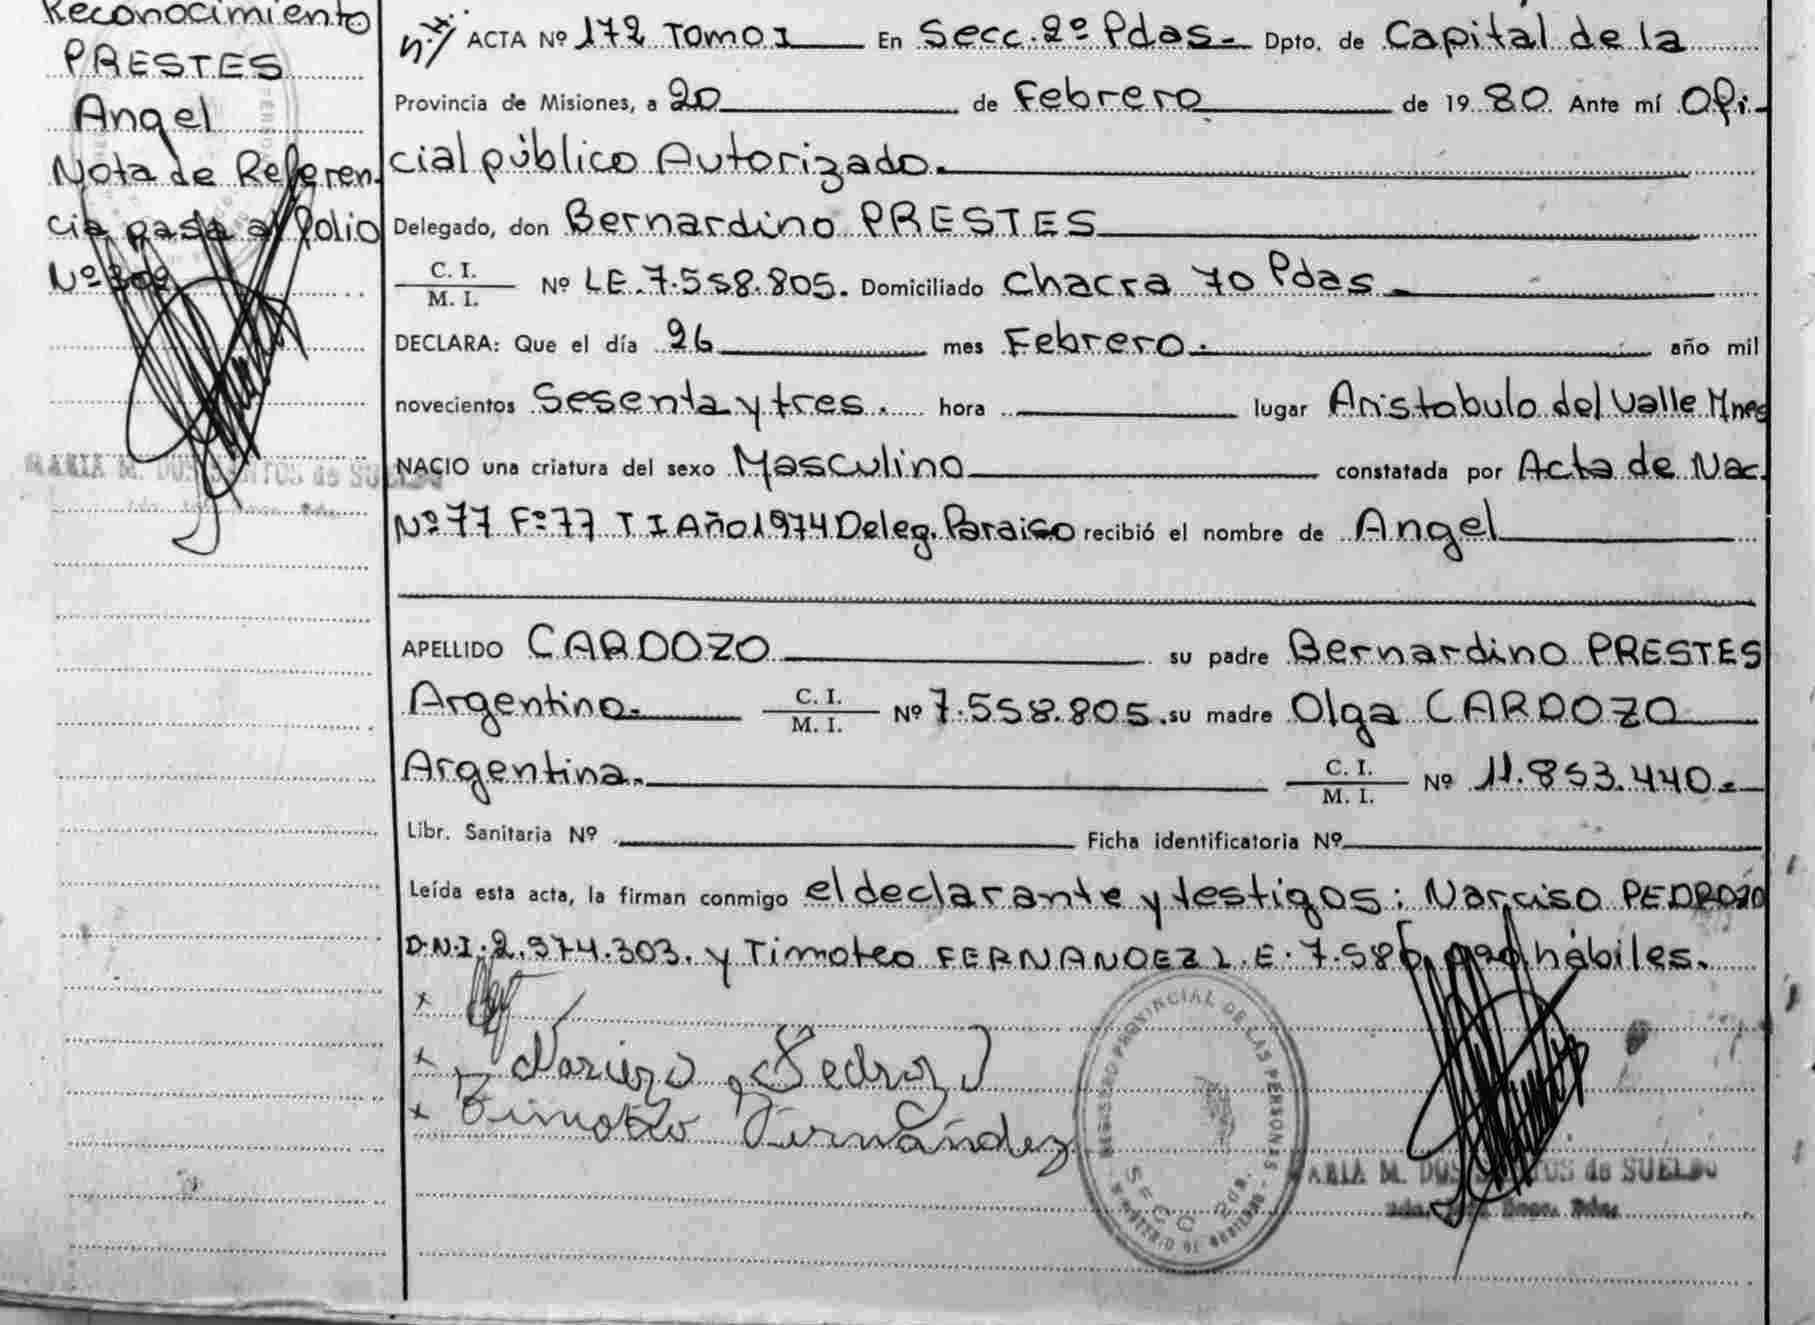 Reconocimiento
PRESTES
Angel
Nota de Referen-
cia pasa al Folio
Nº 302
MARIA M. DOS SANTOS de SUELDO
ACTA Nº 172 Tomo I En Secc. 2º Pdas.- Dpto. de Capital de la
Provincia de Misiones, a 20 de Febrero de 1980. Ante mí Ofi-
cial público Autorizado.
Delegado, don Bernardino PRESTES
C. I.
M. I. Nº LE.7.558.805. Domiciliado Chacra 70 Pdas.
DECLARA: Que el día 26 mes Febrero. año mil
novecientos Sesenta y tres. hora lugar Aristobulo del Valle Mnes
NACIO una criatura del sexo Masculino constatada por Acta de Nac.
Nº 77 Fº 77 T I Año 1974 Deleg. Paraiso recibió el nombre de Angel
APELLIDO CARDOZO su padre Bernardino PRESTES
Argentino. C. I.
M. I. Nº 7.558.805. su madre Olga CARDOZO
Argentina. C. I.
M. I. Nº 11.853.440.-
Libr. Sanitaria Nº Ficha identificatoria Nº
Leída esta acta, la firman conmigo el declarante y testigos: Narciso PEDROZO
D.N.I. 2.974.303. y Timoteo FERNANDEZ L.E. 7.586. hábiles.
x
x Narcizo Pedrozo
x Timoteo Fernández
REGISTRO PROVINCIAL DE LAS PERSONAS
SECC 2da.
MINISTERIO DE GOBIERNO
MARIA M. DOS SANTOS de SUELDO